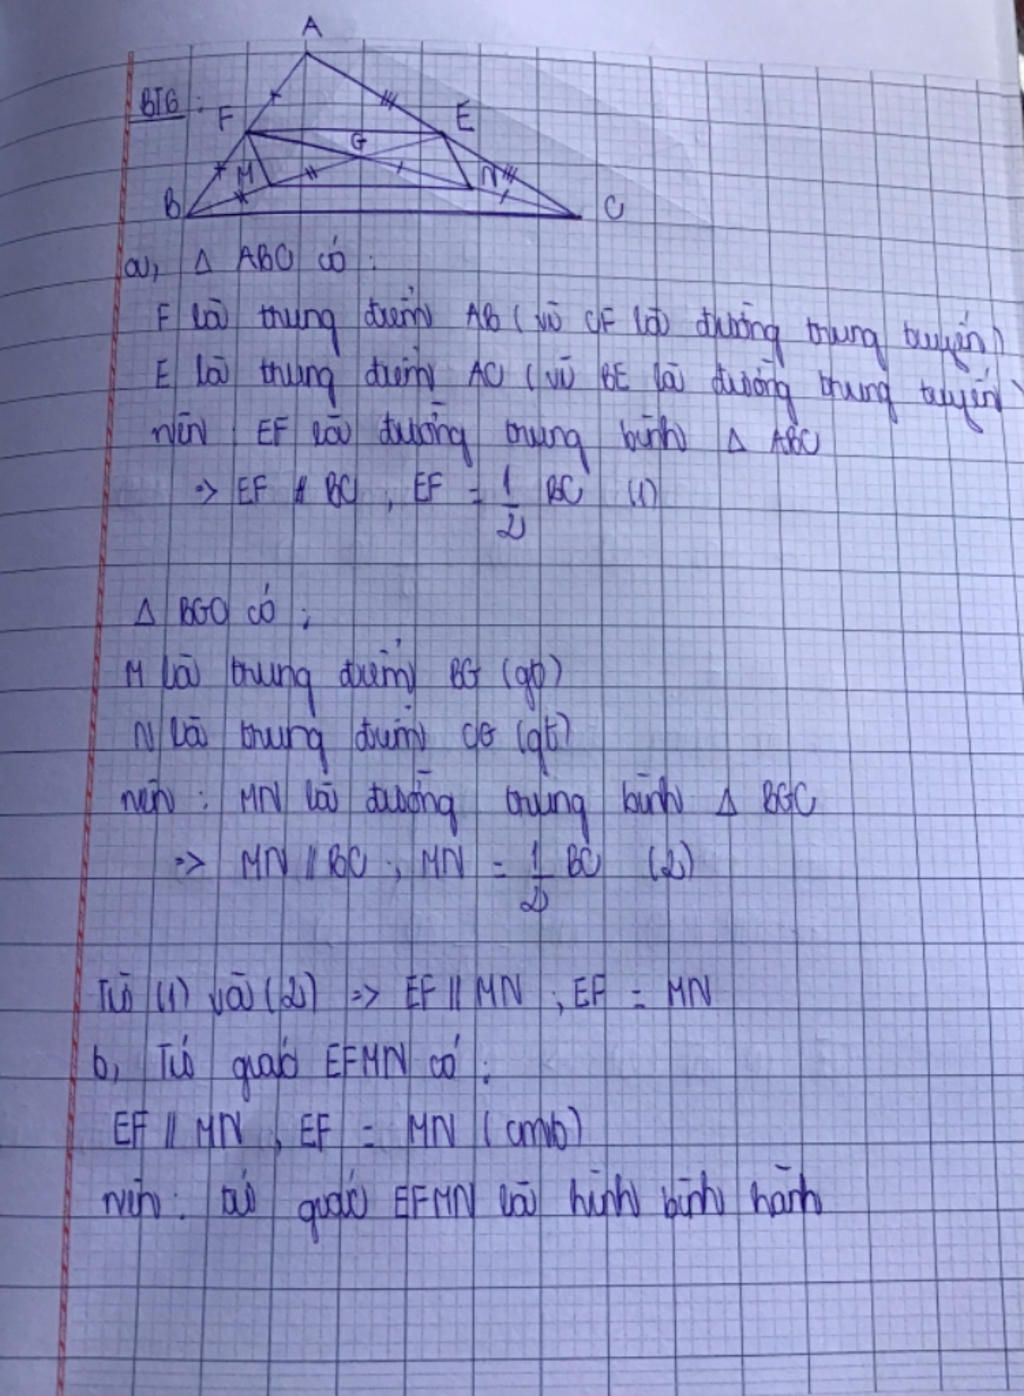 A
BT6 :
F
E
G
M
N
B
C
a, Δ ABC có :
F là trung điểm AB ( vì CF là đường trung tuyến )
E là trung điểm AC ( vì BE là đường trung tuyến )
nên EF là đường trung bình Δ ABC
=> EF // BC , EF = 1/2 BC (1)
Δ BGC có :
M là trung điểm BG (gt)
N là trung điểm CG (gt)
nên : MN là đường trung bình Δ BGC
=> MN // BC , MN = 1/2 BC (2)
Từ (1) và (2) => EF // MN , EF = MN
b, Tứ giác EFMN có :
EF // MN , EF = MN ( cmt )
nên : tứ giác EFMN là hình bình hành